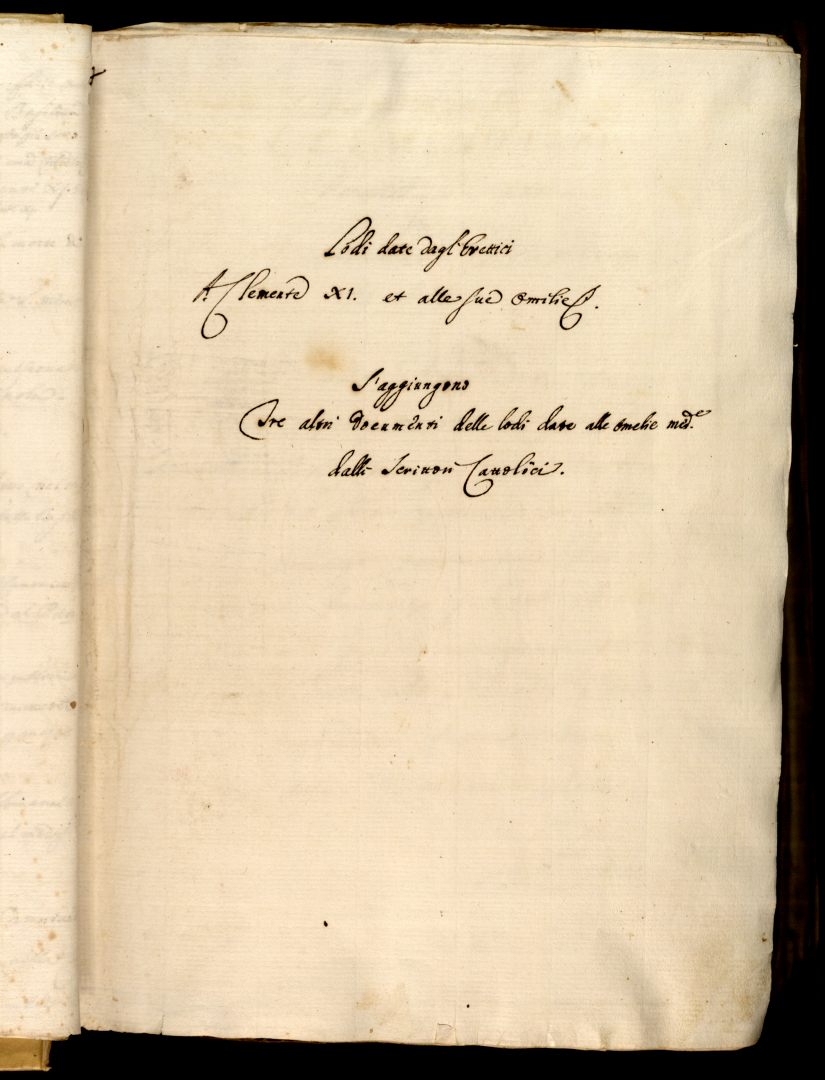 Lodi date dagl'Eretici
A Clemente XI. et alle sue Omilie.
S'aggiungono
Tre altri Documenti delle lodi date alle Omelie med.e
dalli Scrittori Cattolici.